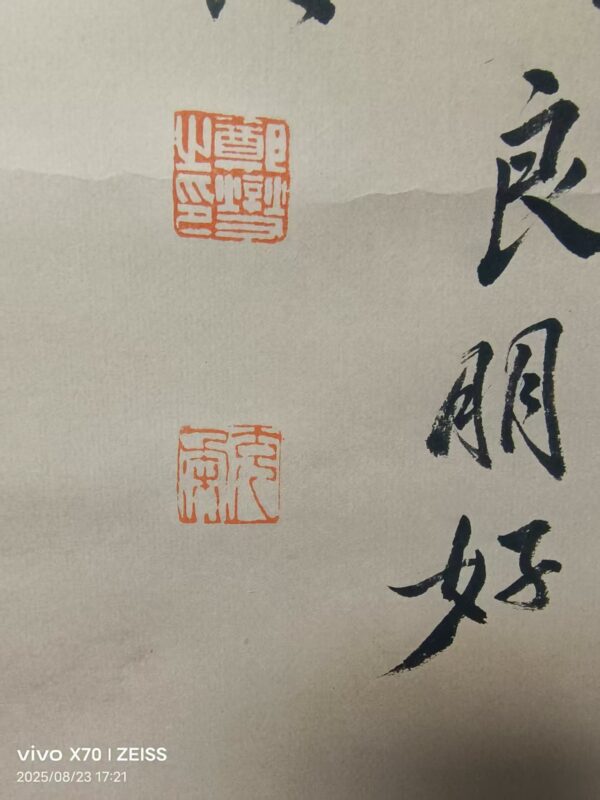 良朋好
鄭燮
之印
克柔
vivo X70 | ZEISS
2025/08/23 17:21